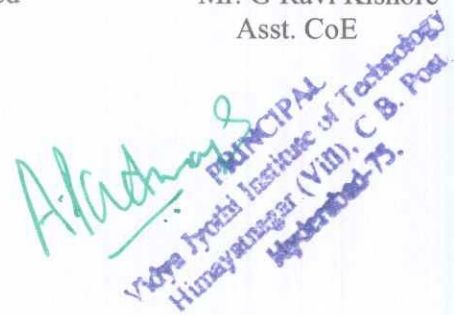 Mr. G Ravi Kishore
Asst. CoE
PRINCIPAL
Vidya Jyothi Institute of Technology
Himayatnagar (Vill), C B. Post
Hyderabad-75.